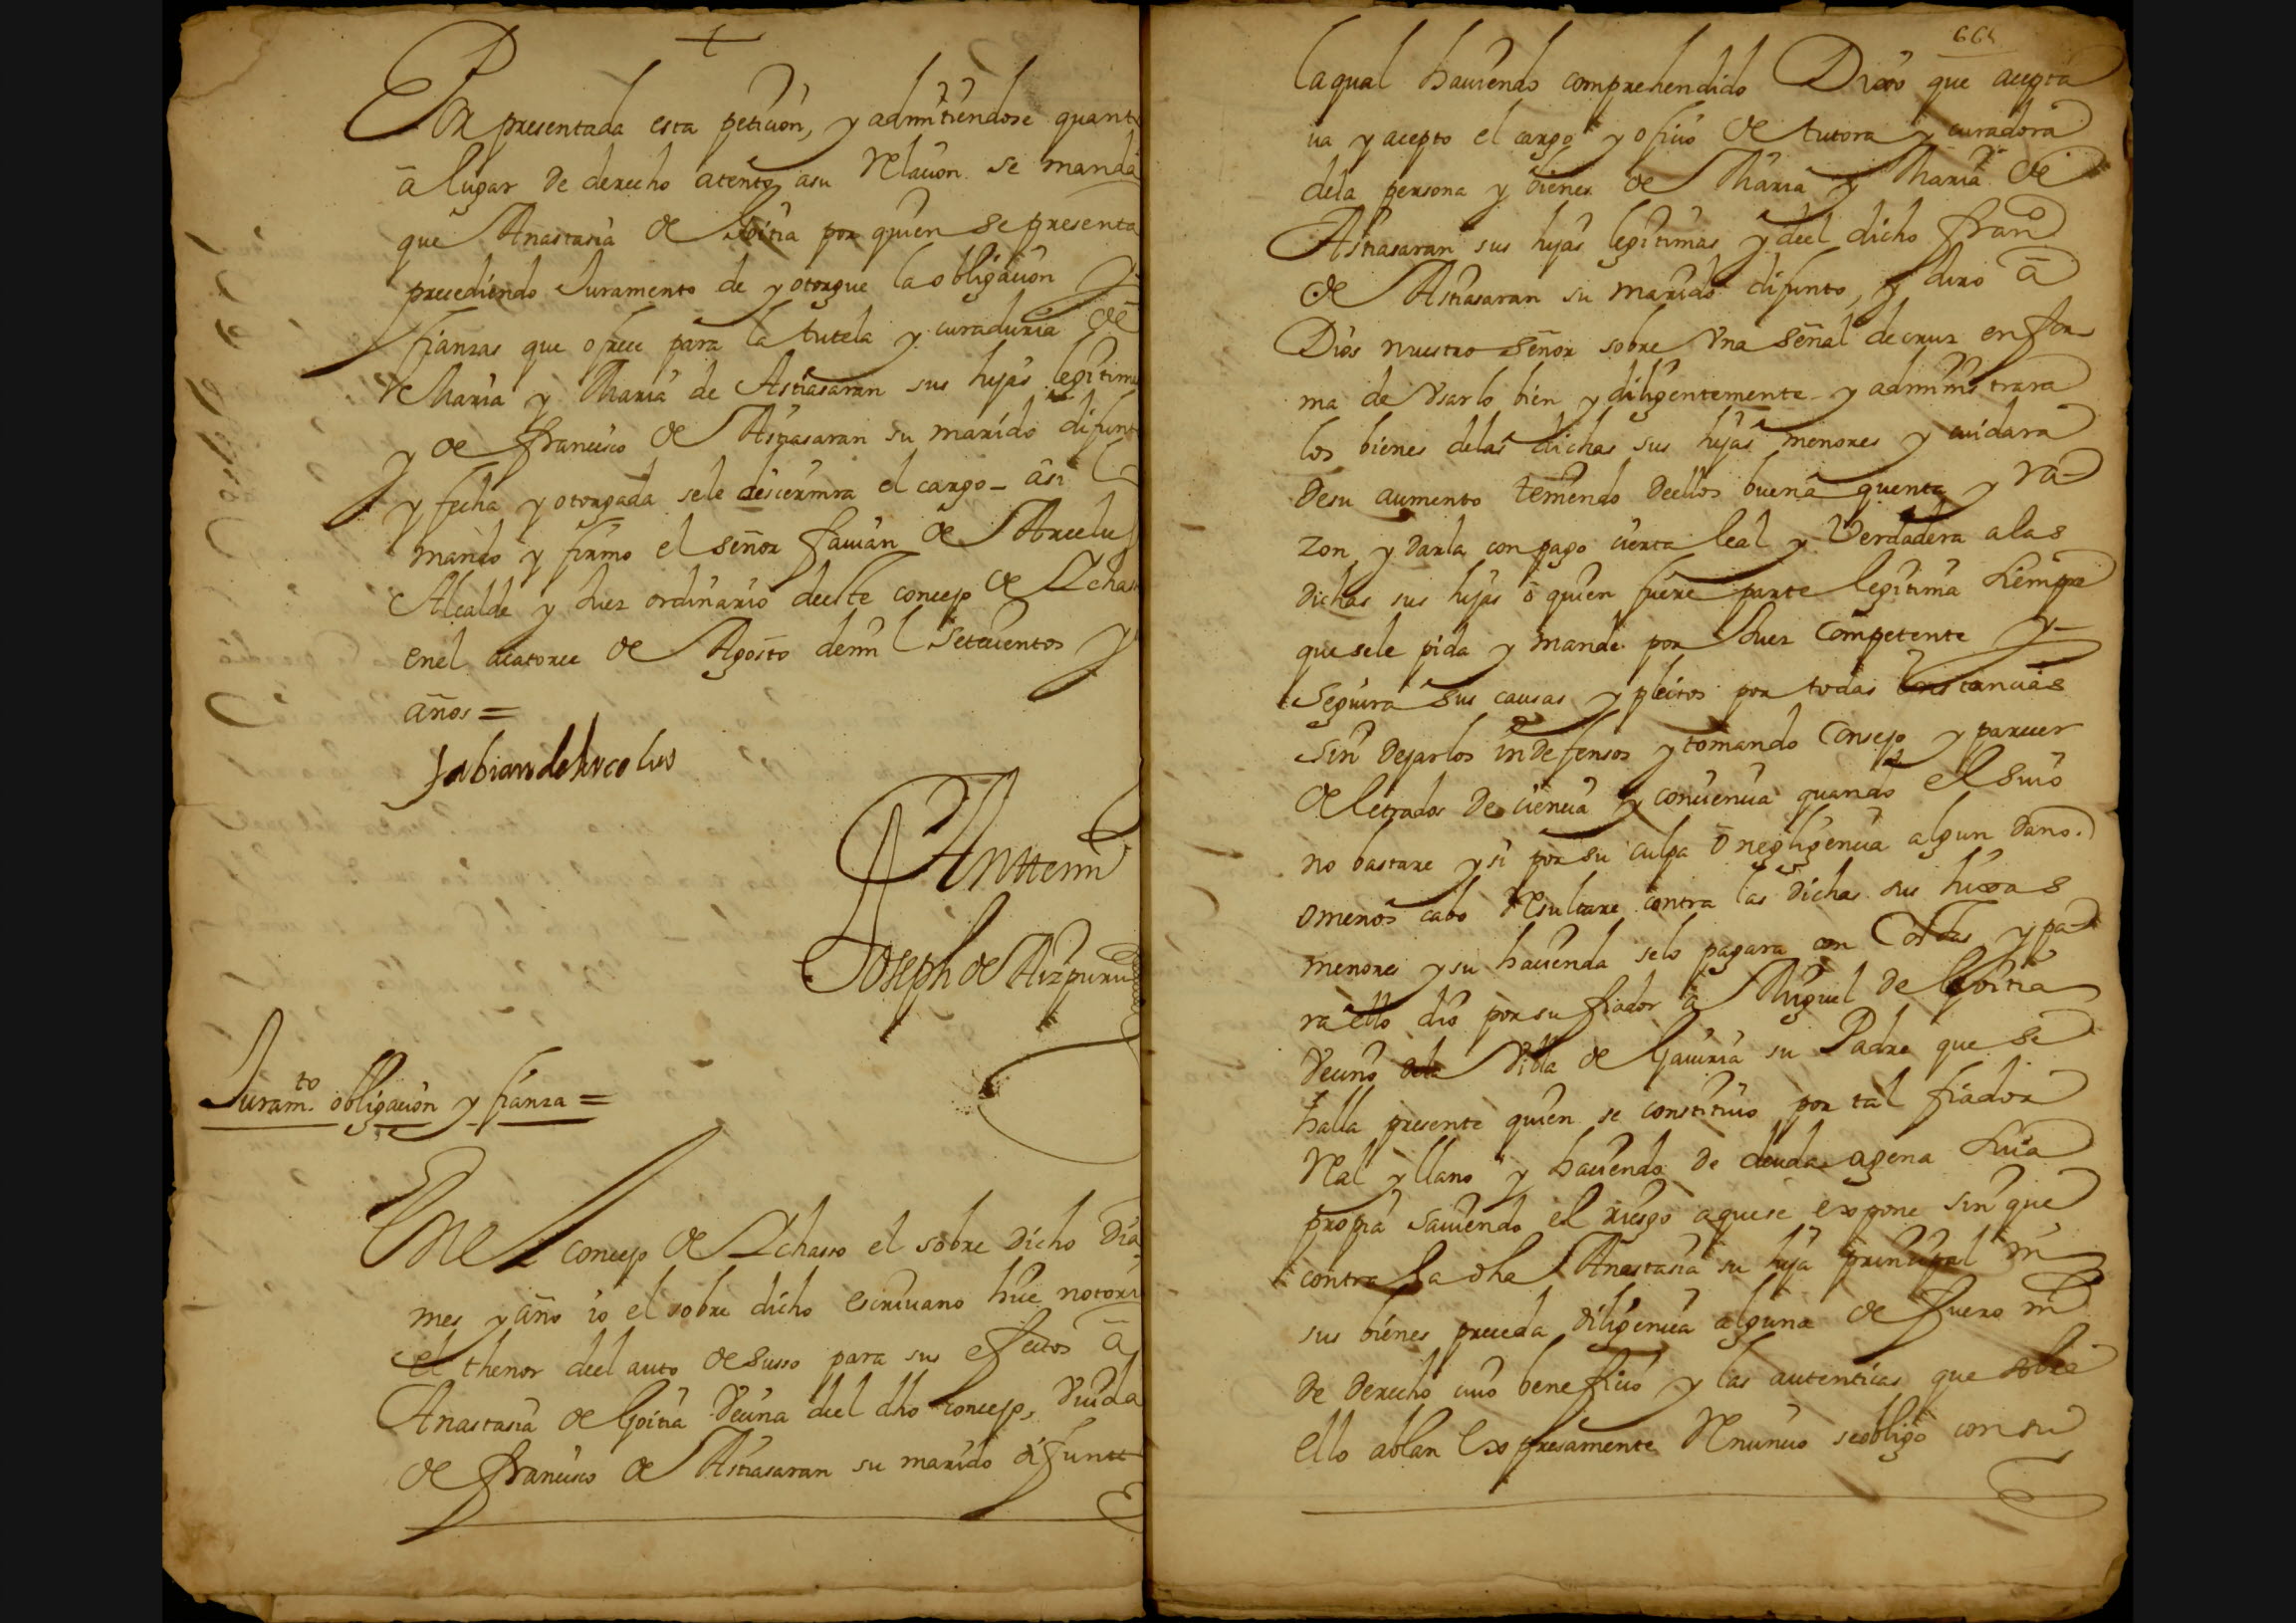 +
Por presentada esta peticion, y admitiendose quant
ā lugar de derecho atento asu Relacion se manda
que Anastasia de Goitia por quien se presenta
precediendo Juramento de y otorgue la obligacion y
fianzas que ofrece para la tutela y curaduria de
Maria y Maria de Astiasaran sus hijas legitima
y de francisco de Astiasaran su marido difunt
y fecha y otorgada sele discernira el cargo – asi lo
mando y firmo el señor favian de Arcelus
Alcalde y Juez ordinario deeste concejo de Ichaso
enel catorce de Agosto demil Setecientos y
años =
fabian de Arcelus
Antemi
Joseph de Aizpuru
Juram.to obligacion y fianza =
Enel concejo de Ichasso el sobre dicho Dia
mes y año io el sobre dicho escrivano hice notori
el thenor deel auto de susso para sus efectos ā
Anastasia de Goitia Vecina deel dho concejo, Viuda
de francisco de Astiasaran su marido difunto
laqual haviendo comprehendido Dixo que acepta
va y acepto el cargo y oficio de tutora y curadora
dela persona y bienes de Maria y Maria de
Astiasaran sus hijas legitimas y deel dicho fran.co
de Astiasaran su marido difunto, y Juro ā
Dios nuestro señor sobre Una señal de cruz en for
ma de Usarlo bien y diligentemente y administrara
los bienes delas dichas sus hijas menores y cuidara
Desu aumento teniendo Deellos buena quenta y ra
zon y Darla con pago cierta leal y Verdadera alas
Dichas sus hijas ō quien fuere parte legitima siempre
que sele pida y mande por Juez Competente y
Seguira sus causas y pleitos por todas Instancias
Sin Dejarlos inDefensos y tomando Consejo y parecer
de letrados De ciencia y conciencia quando el suio
no bastare y si por su culpa ō negligencia algun Daño.
o menos cabo Resultare contra las Dichas sus hixas
menores y su hacienda selo pagara con Costas y pa
ra ello dio por su fiador ā Miguel De Goitia
Vecino dela Villa de Gaviria su Padre que se
halla presente quien se constituio por tal fiador
Real y llano y haciendo De deuda agena suia
propia saviendo el riesgo aquese expone sin que
contra la dha Anastasia su hija principal ni
sus bienes preceda diligencia alguna de fuero ni
De Derecho cuio beneficio y las autenticas que sobre
ello ablan Expresamente Renuncio se obligo con su